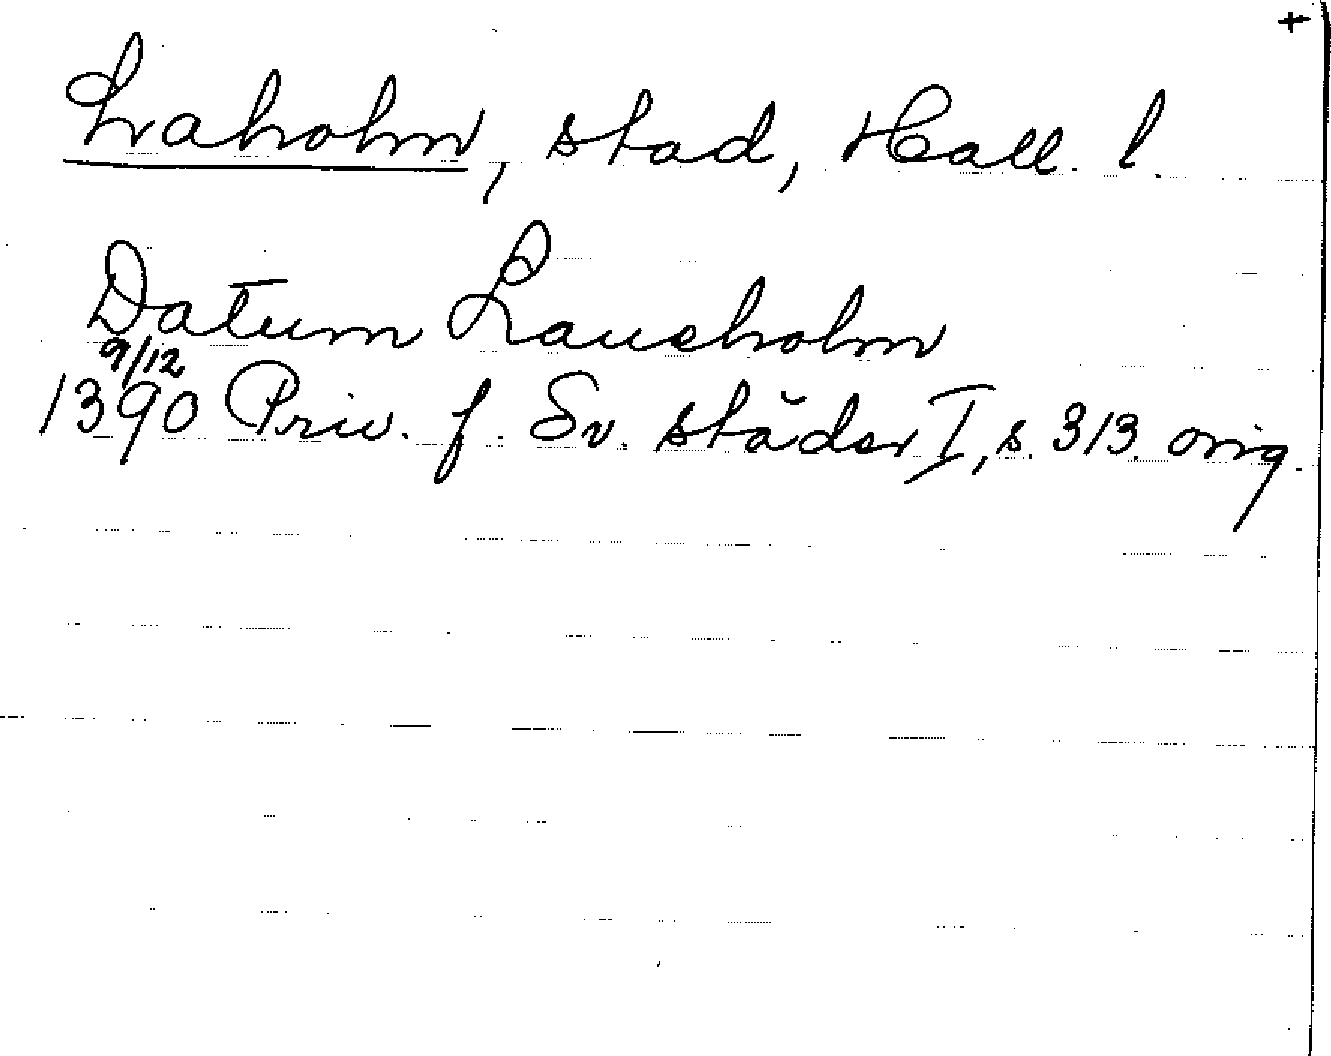 +
Laholm, stad, Hall. l.
Datum Laueholm
9/12
1390 Priv. f. Sv. städer I, s. 313. orig.